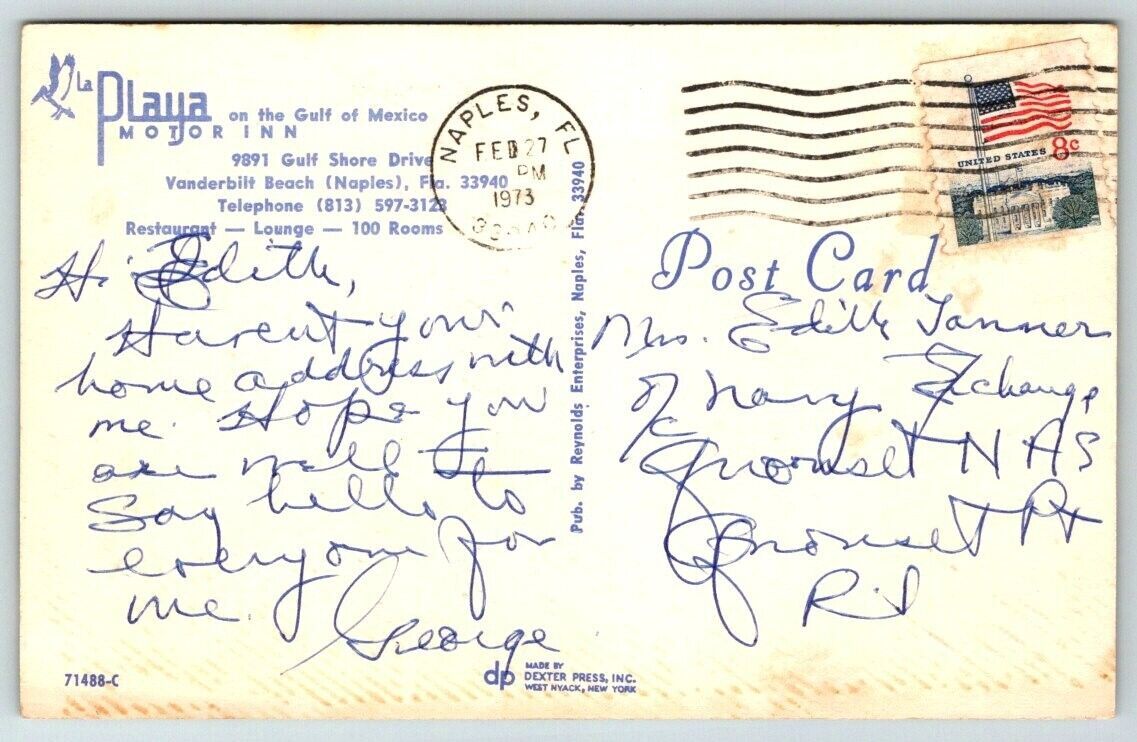 La Playa
MOTOR INN
on the Gulf of Mexico
9891 Gulf Shore Drive
Vanderbilt Beach (Naples), Fla. 33940
Telephone (813) 597-3123
Restaurant — Lounge — 100 Rooms
NAPLES, FL
FEB 27
PM
1973
UNITED STATES 8c
Hi Edith,
Havent your
home address with
me. Hope you
are well
Say hello to
everyone for
me.
George
Pub. by Reynolds Enterprises, Naples, Fla. 33940
Post Card
Mrs. Edith Tanner
c/o Navy Exchange
Quonset NAS
Quonset Pt
RI
71488-C
dp
MADE BY
DEXTER PRESS, INC.
WEST NYACK, NEW YORK